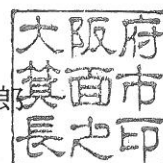 大阪府
箕面市
長之印
郎